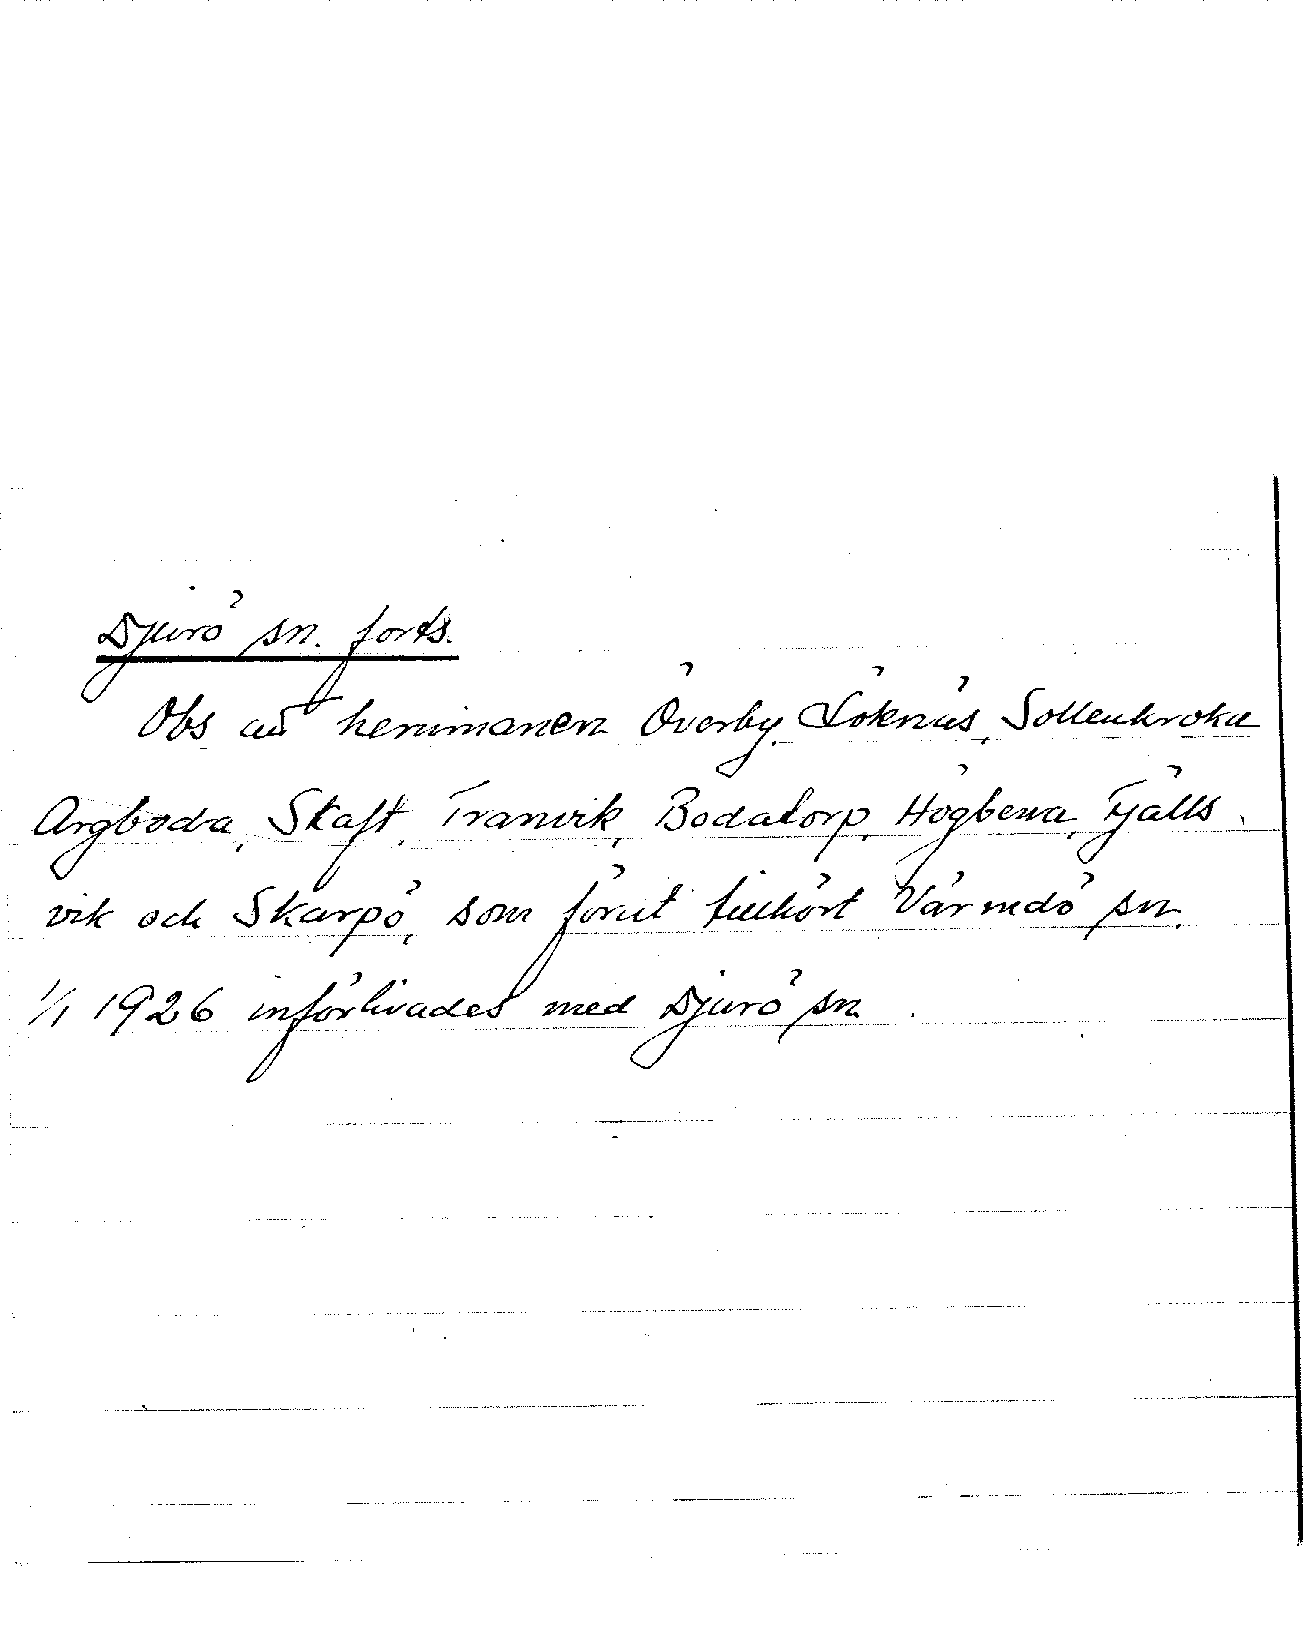 Djurö sn. forts.
Obs att hemmanen Överby, Löknäs, Sollenkroka
Argboda, Skaft, Tranvik, Bodatorp, Högbena, Fjälls
vik och Skarpö, som förut tillhört Värmdö sn.
1/1 1926 införlivades med Djurö sn.